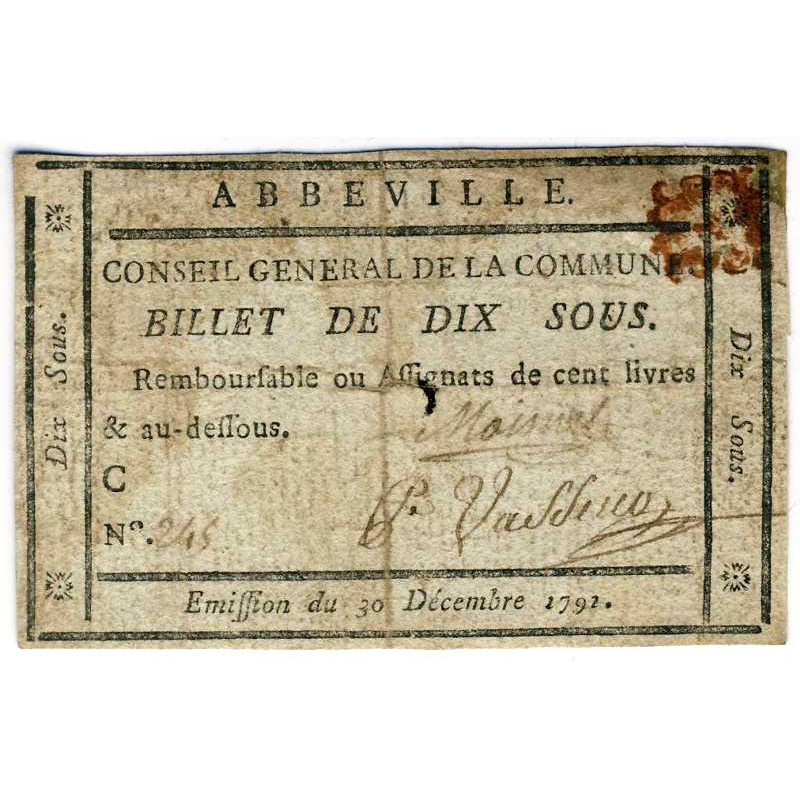 ABBEVILLE.
CONSEIL GENERAL DE LA COMMUNE.
BILLET DE DIX SOUS.
Dix Sous.
Rembourſable ou Aſſignats de cent livres
& au-deſſous.
C
Nº. 245
Dix Sous.
Emiſſion du 30 Décembre 1791.